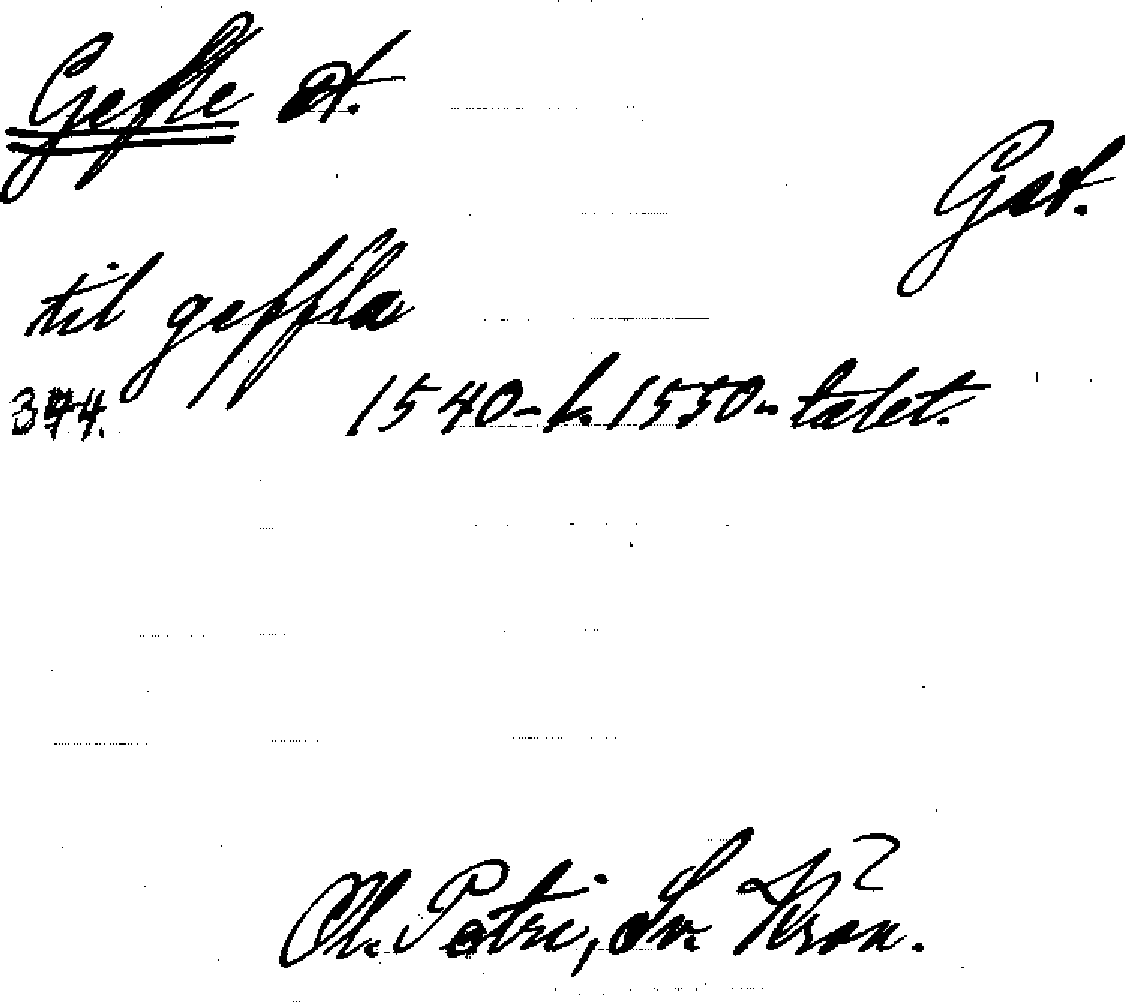 Gefle st.
Gst.
til geffla
344. 1540-h. 1550-talet.
Ol. Petri, Sv. Krön.